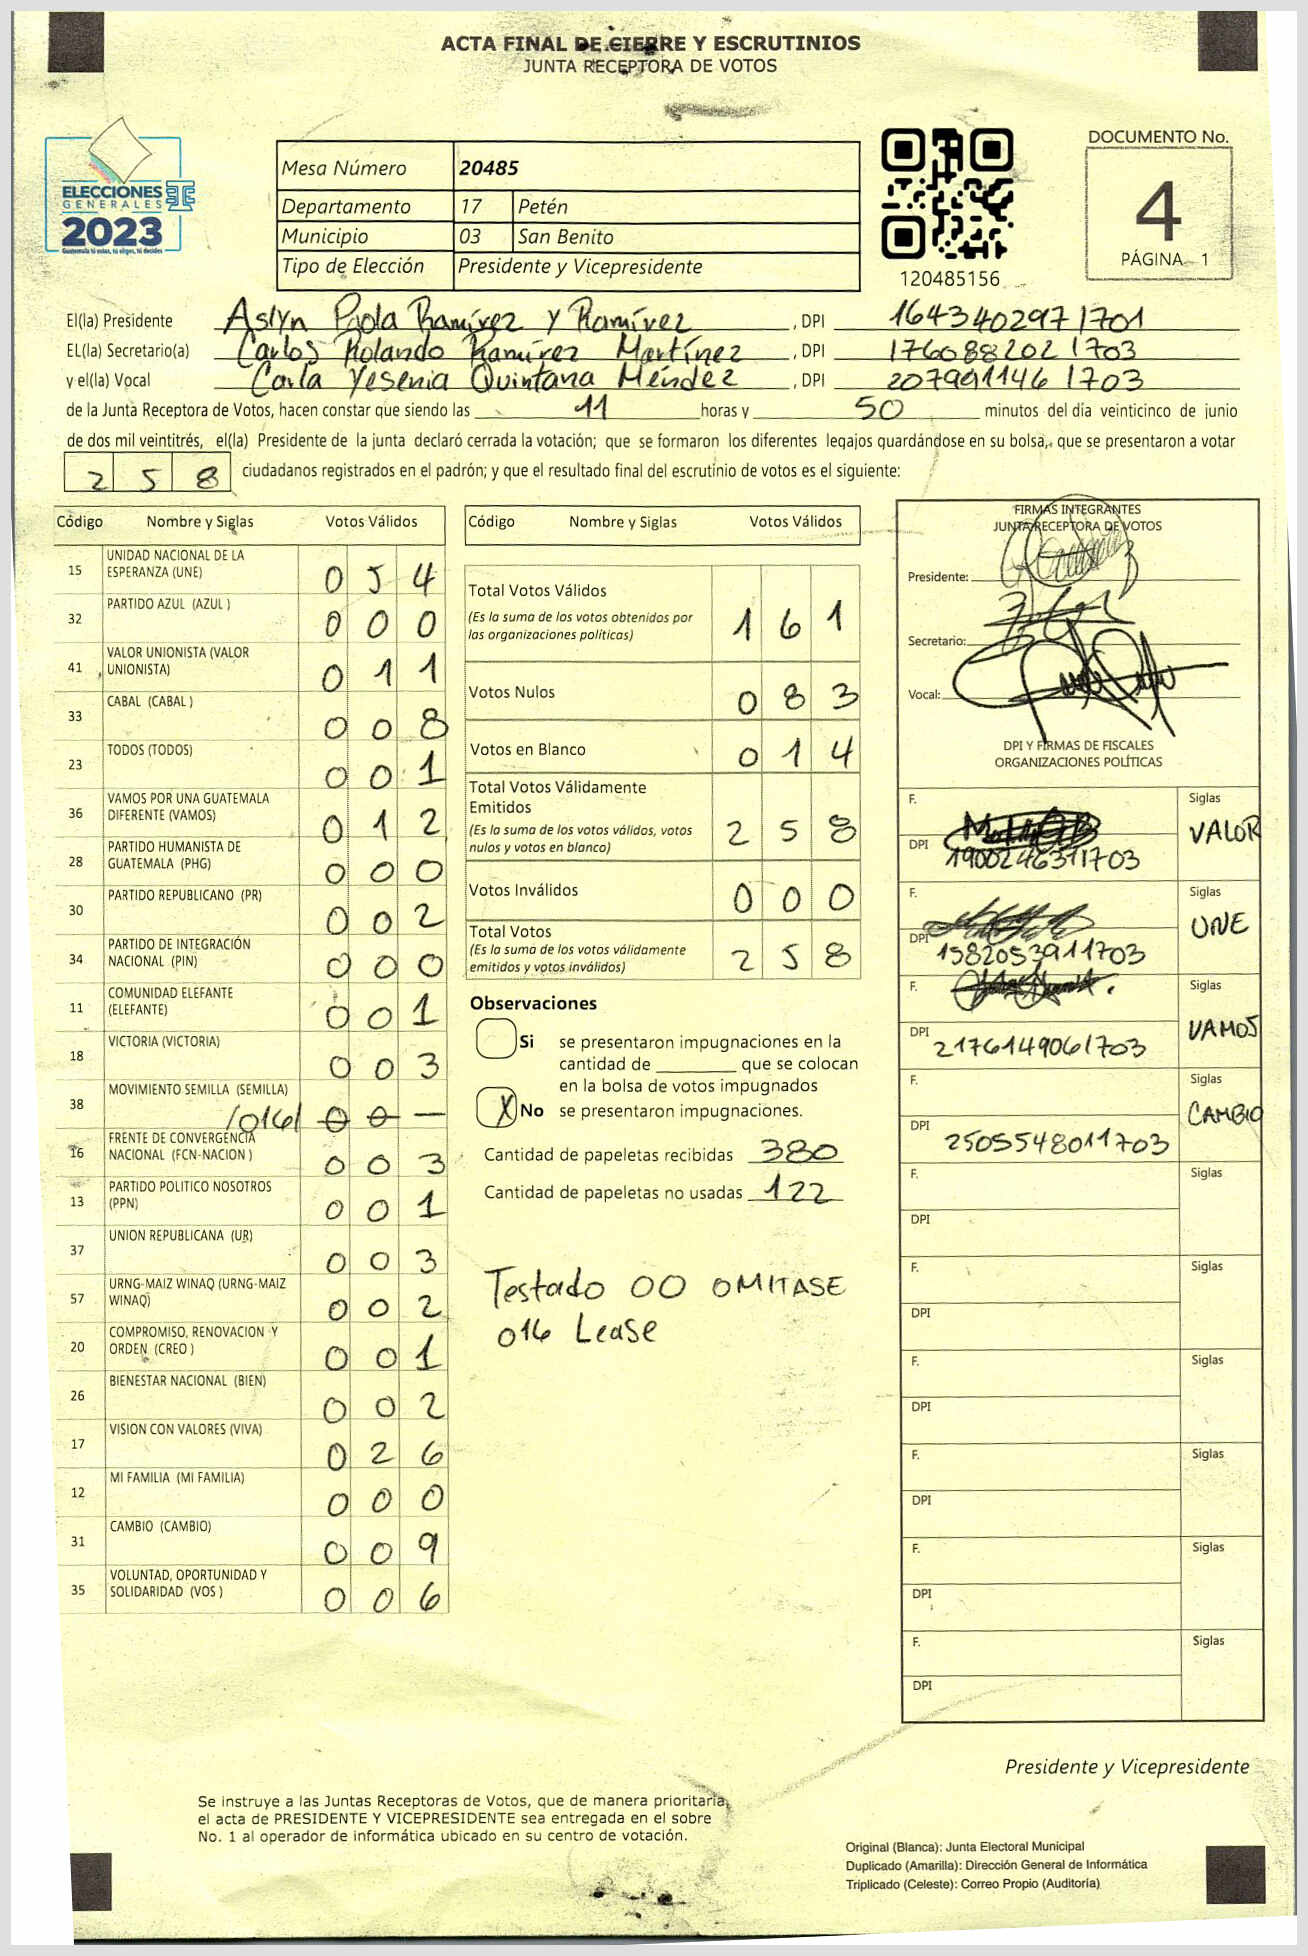 ACTA FINAL DE CIERRE Y ESCRUTINIOS
JUNTA RECEPTORA DE VOTOS
ELECCIONES
GENERALES
2023
Guatemala tú estas, tú eliges, tú decides
Mesa Número 20485
Departamento 17 Petén
Municipio 03 San Benito
Tipo de Elección Presidente y Vicepresidente
120485156
DOCUMENTO No.
4
PÁGINA 1
El(la) Presidente Aslyn Paola Ramírez y Ramírez , DPI 1643402971701
EL(la) Secretario(a) Carlos Rolando Ramírez Martínez , DPI 1760882021703
y el(la) Vocal Carla Yesenia Quintana Méndez , DPI 2079911461703
de la Junta Receptora de Votos, hacen constar que siendo las 11 horas y 50 minutos del día veinticinco de junio
de dos mil veintitrés, el(la) Presidente de la junta declaró cerrada la votación; que se formaron los diferentes legajos guardándose en su bolsa, que se presentaron a votar
258 ciudadanos registrados en el padrón; y que el resultado final del escrutinio de votos es el siguiente:
Código Nombre y Siglas Votos Válidos
15 UNIDAD NACIONAL DE LA ESPERANZA (UNE) 054
32 PARTIDO AZUL (AZUL ) 000
41 VALOR UNIONISTA (VALOR UNIONISTA) 011
33 CABAL (CABAL ) 008
23 TODOS (TODOS) 001
36 VAMOS POR UNA GUATEMALA DIFERENTE (VAMOS) 012
28 PARTIDO HUMANISTA DE GUATEMALA (PHG) 000
30 PARTIDO REPUBLICANO (PR) 002
34 PARTIDO DE INTEGRACIÓN NACIONAL (PIN) 000
11 COMUNIDAD ELEFANTE (ELEFANTE) 001
18 VICTORIA (VICTORIA) 003
38 MOVIMIENTO SEMILLA (SEMILLA) /016/ 0 0 —
16 FRENTE DE CONVERGENCIA NACIONAL (FCN-NACION ) 003
13 PARTIDO POLITICO NOSOTROS (PPN) 001
37 UNION REPUBLICANA (UR) 003
57 URNG-MAIZ WINAQ (URNG-MAIZ WINAQ) 002
20 COMPROMISO, RENOVACION Y ORDEN (CREO ) 001
26 BIENESTAR NACIONAL (BIEN) 002
17 VISION CON VALORES (VIVA) 026
12 MI FAMILIA (MI FAMILIA) 000
31 CAMBIO (CAMBIO) 009
35 VOLUNTAD, OPORTUNIDAD Y SOLIDARIDAD (VOS ) 006
Código Nombre y Siglas Votos Válidos
Total Votos Válidos 161
(Es la suma de los votos obtenidos por
las organizaciones políticas)
Votos Nulos 083
Votos en Blanco 014
Total Votos Válidamente
Emitidos 258
(Es la suma de los votos válidos, votos
nulos y votos en blanco)
Votos Inválidos 000
Total Votos 258
(Es la suma de los votos válidamente
emitidos y votos inválidos)
Observaciones
Si se presentaron impugnaciones en la
cantidad de ________ que se colocan
en la bolsa de votos impugnados
X No se presentaron impugnaciones.
Cantidad de papeletas recibidas 380
Cantidad de papeletas no usadas 122
Testado 00 OMITASE
016 Lease
FIRMAS INTEGRANTES
JUNTA RECEPTORA DE VOTOS
Presidente:
Secretario:
Vocal:
DPI Y FIRMAS DE FISCALES
ORGANIZACIONES POLÍTICAS
F. Siglas
DPI 1900246311703 VALOR
F. Siglas
DPI 1582053911703 UNE
F. Siglas
DPI 2176149061703 VAMOS
F. Siglas
DPI 2505548011703 CAMBIO
F. Siglas
DPI
F. Siglas
DPI
F. Siglas
DPI
F. Siglas
DPI
F. Siglas
DPI
F. Siglas
DPI
Presidente y Vicepresidente
Se instruye a las Juntas Receptoras de Votos, que de manera prioritaria,
el acta de PRESIDENTE Y VICEPRESIDENTE sea entregada en el sobre
No. 1 al operador de informática ubicado en su centro de votación.
Original (Blanca): Junta Electoral Municipal
Duplicado (Amarilla): Dirección General de Informática
Triplicado (Celeste): Correo Propio (Auditoría)